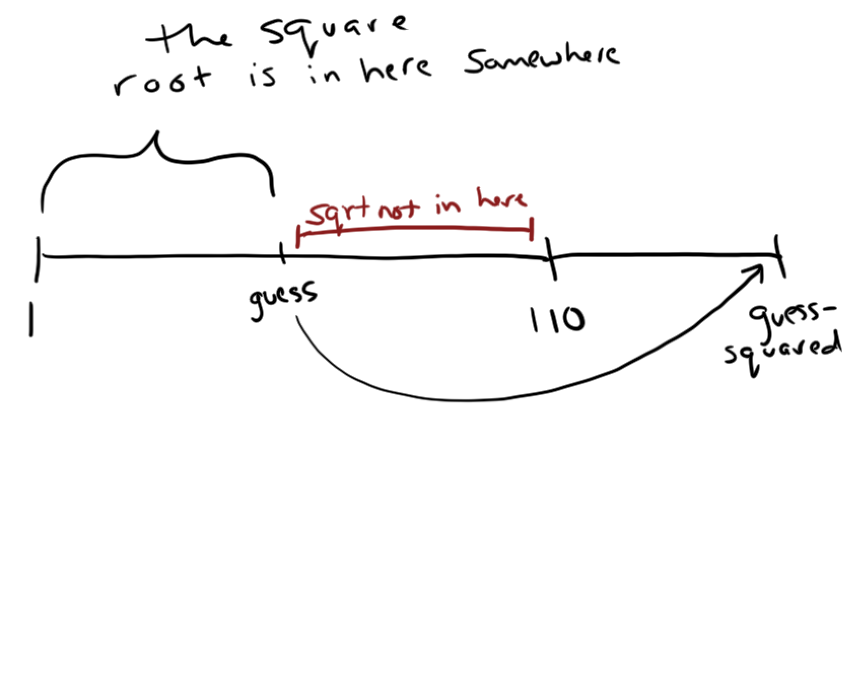 the square
root is in here somewhere
sqrt not in here
guess
1
110
guess-
squared